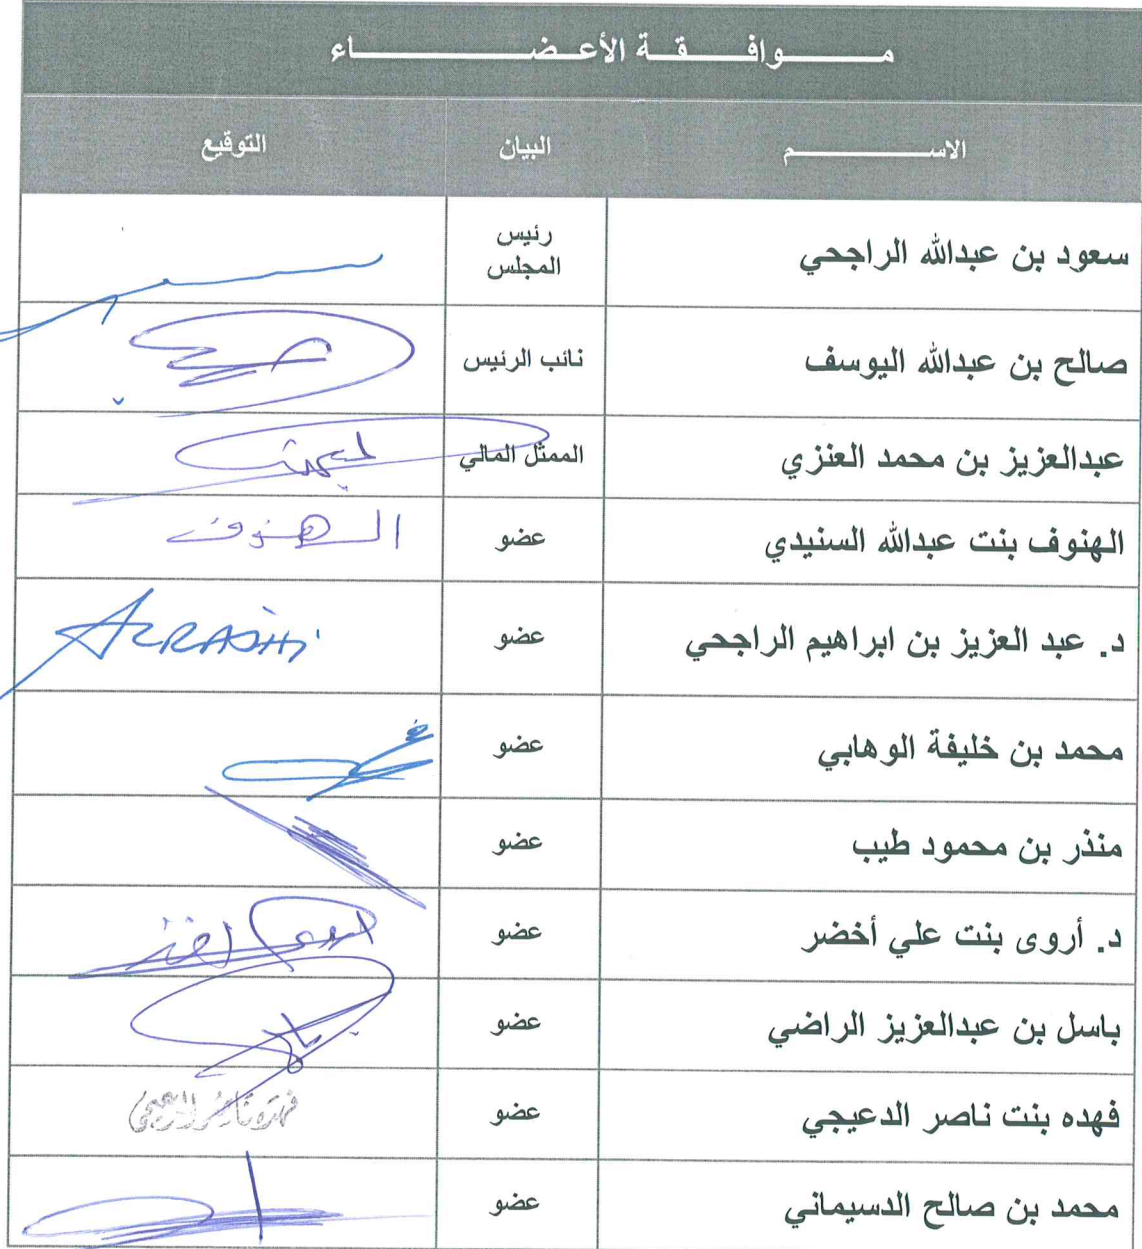 مـــــوافـــــقـــة الأعـــضـــــــــــــاء
الاســــــــــــم البيان التوقيع
سعود بن عبدالله الراجحي رئيس المجلس
صالح بن عبدالله اليوسف نائب الرئيس
عبدالعزيز بن محمد العنزي الممثل المالي
الهنوف بنت عبدالله السنيدي عضو الهنوف
د. عبد العزيز بن ابراهيم الراجحي عضو ALRAJHI
محمد بن خليفة الوهابي عضو
منذر بن محمود طيب عضو
د. أروى بنت علي أخضر عضو أروى أخضر
باسل بن عبدالعزيز الراضي عضو
فهده بنت ناصر الدعيجي عضو فهده ناصر الدعيجي
محمد بن صالح الدسيماني عضو